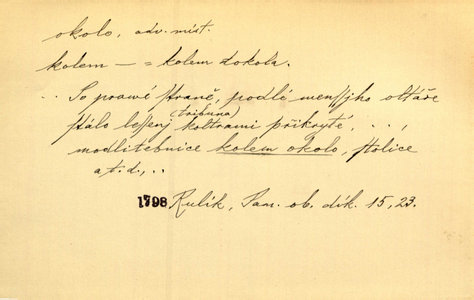 okolo, adv. míst.
kolem — = kolem dokola.
.. Po prawé straně, podlé mensſjho oltáře
ſtálo leſſenj (tribuna) koltrami přikryté, . . ,
modlitebnice kolem okolo, ſtolice
a t. d., ..
1798 Rulík, Pam. ob. dík. 15, 23.